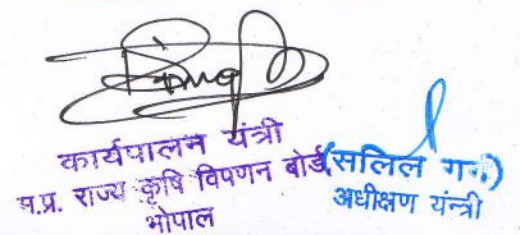 कार्यपालन यंत्री
म.प्र. राज्य कृषि विपणन बोर्ड
भोपाल
(सलिल
अधीक्षण यंन्त्री